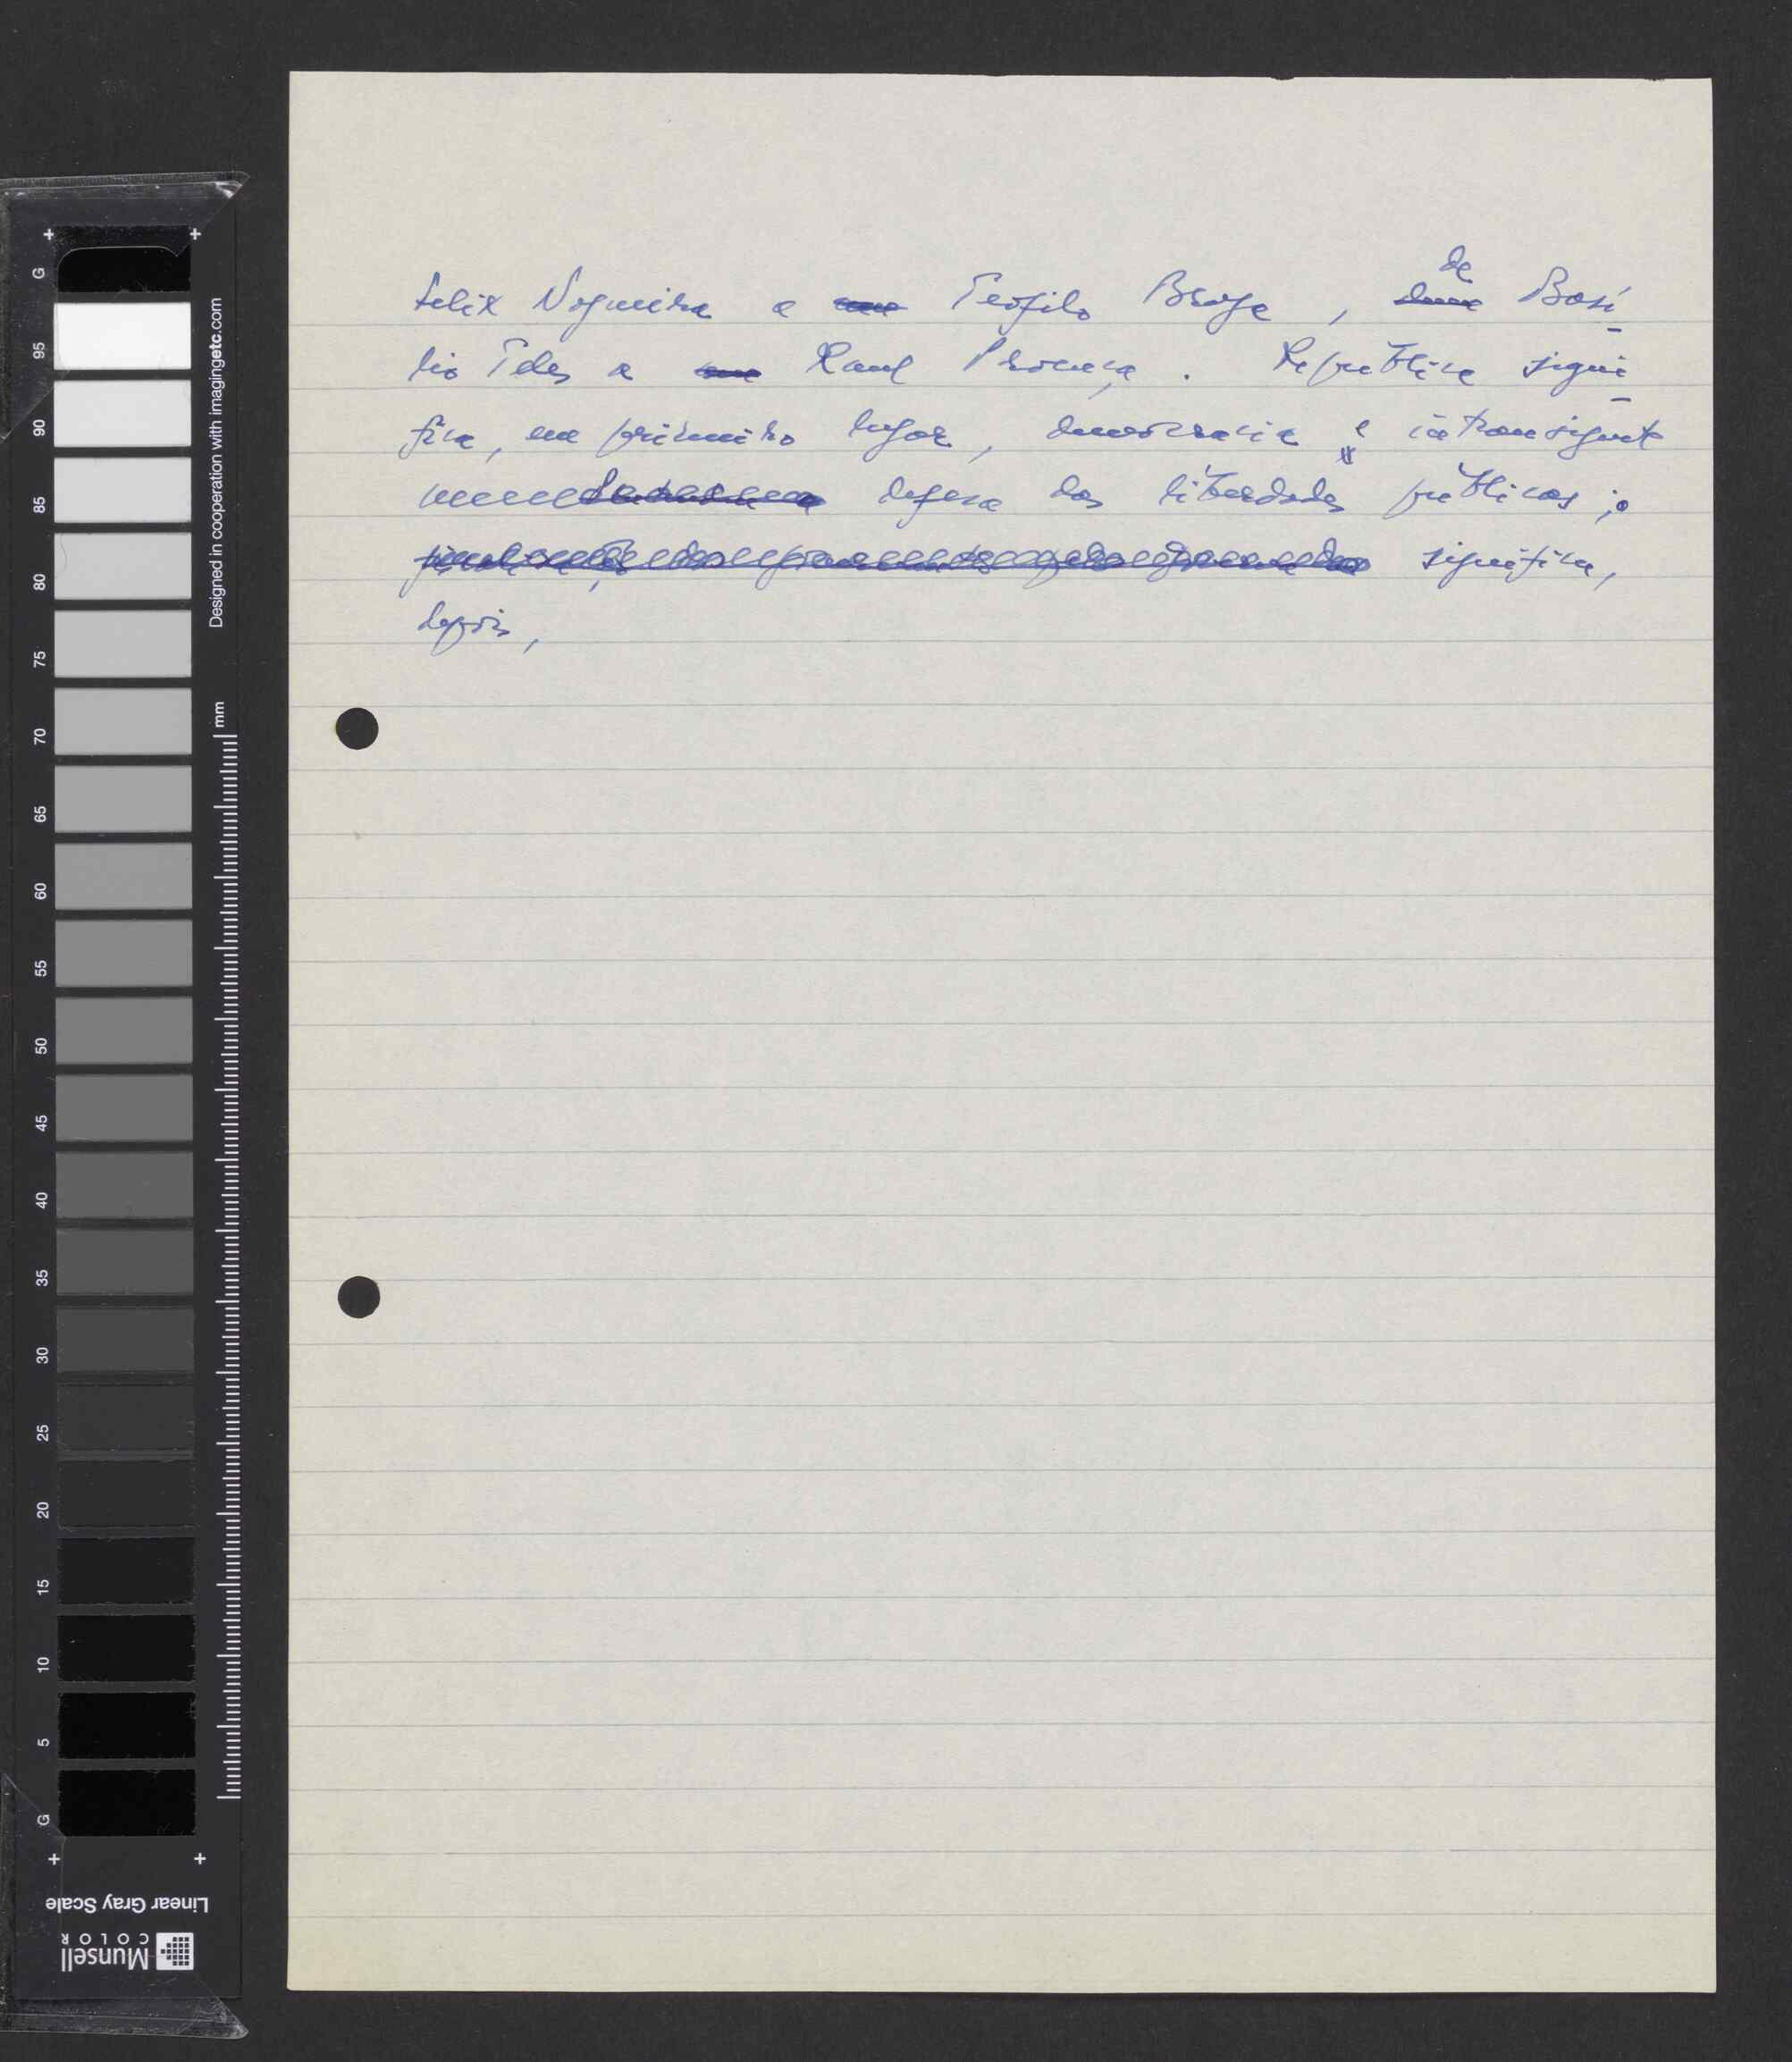 Felix Nogueira a Teofilo Braga, de Basí
lio Teles a Raul Proença. República signi
fica, em primeiro lugar, democracia e intransigente
defesa das liberdades públicas;
significa,
depois,
Designed in cooperation with imagingetc.com
mm
G
95
90
85
80
75
70
65
60
55
50
45
40
35
30
25
20
15
10
5
G
Linear Gray Scale
Munsell
COLOR